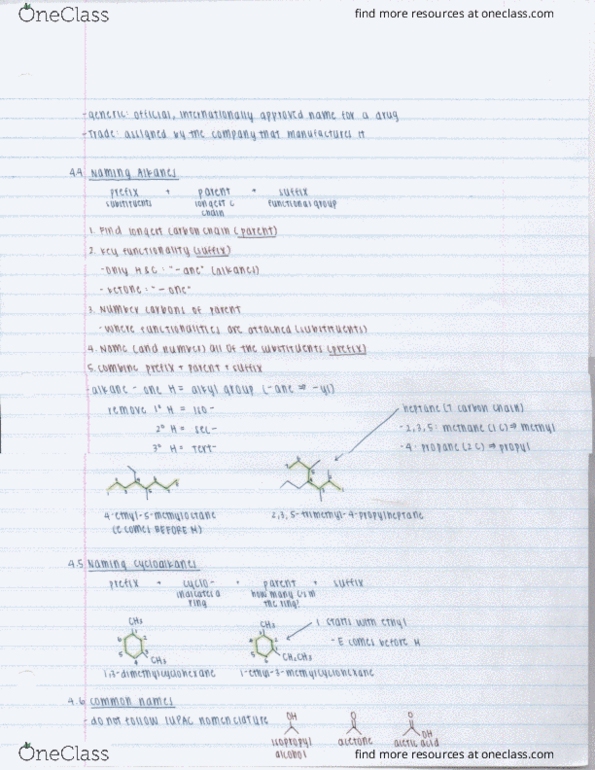 OneClass
find more resources at oneclass.com
- generic: official, internationally approved name for a drug
- Trade: assigned by the company that manufactures it
4.4 Naming Alkanes
prefix + parent + suffix
substituents longest C chain functional group
1. Find longest carbon chain (parent)
2. Key functionality (suffix)
- only H & C: "-ane" (alkanes)
- ketone: "-one"
3. Number carbons of parent
- where functionalities are attached (substituents)
4. Name (and number) all of the substituents (prefix)
5. Combine prefix + parent + suffix
- alkane - one H = alkyl group (-ane ⇒ -yl)
remove 1° H = iso-
2° H = sec-
3° H = tert-
heptane (7 carbon chain)
- 2,3,5: methane (1C) ⇒ methyl
- 4: propane (2C) ⇒ propyl
4-ethyl-5-methyloctane
(E comes BEFORE M)
2,3,5-trimethyl-4-propylheptane
4.5 Naming Cycloalkanes
prefix + cyclo- + parent + suffix
indicates a ring how many C's in the ring?
CH3
CH3
1,3-dimethylcyclohexane
CH3
CH2CH3
1-ethyl-3-methylcyclohexane
1 starts with ethyl
- E comes before M
4.6 Common names
- do not follow IUPAC nomenclature
OH
isopropyl alcohol
O
acetone
O
OH
acetic acid
OneClass
find more resources at oneclass.com